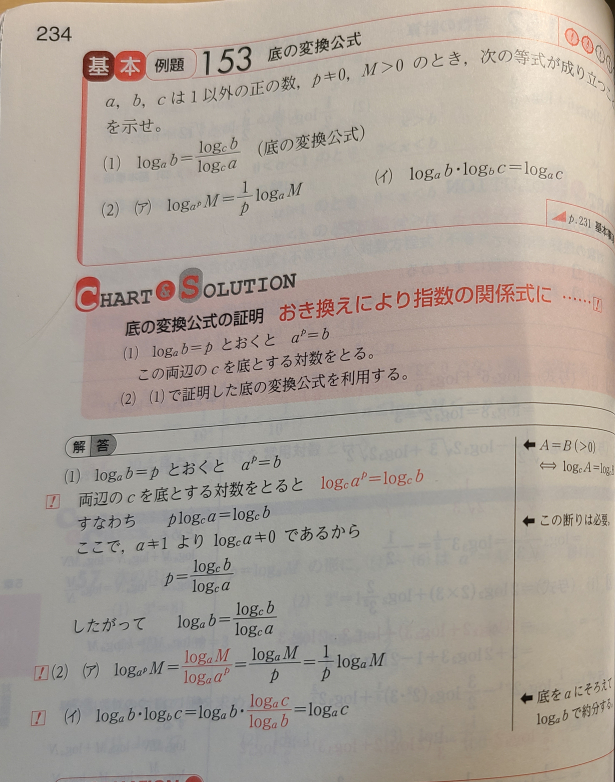 234
基本 例題 153 底の変換公式
a, b, c は1以外の正の数, p≠0, M>0 のとき, 次の等式が成り立つこ
を示せ。
(1) log_a b = log_c b / log_c a (底の変換公式)
(2) (ア) log_{a^p} M = 1/p log_a M (イ) log_a b・log_b c = log_a c
p.231 基本
CHART & SOLUTION
底の変換公式の証明 おき換えにより指数の関係式に ……!
(1) log_a b = p とおくと a^p = b
この両辺の c を底とする対数をとる。
(2) (1)で証明した底の変換公式を利用する。
解答
(1) log_a b = p とおくと a^p = b
! 両辺の c を底とする対数をとると log_c a^p = log_c b
すなわち p log_c a = log_c b
ここで, a≠1 より log_c a ≠ 0 であるから
p = log_c b / log_c a
したがって log_a b = log_c b / log_c a
! (2) (ア) log_{a^p} M = log_a M / log_a a^p = log_a M / p = 1/p log_a M
! (イ) log_a b・log_b c = log_a b・log_a c / log_a b = log_a c
← A=B(>0)
⇔ log_c A = log_c
← この断りは必要。
← 底を a にそろえて
log_a b で約分する